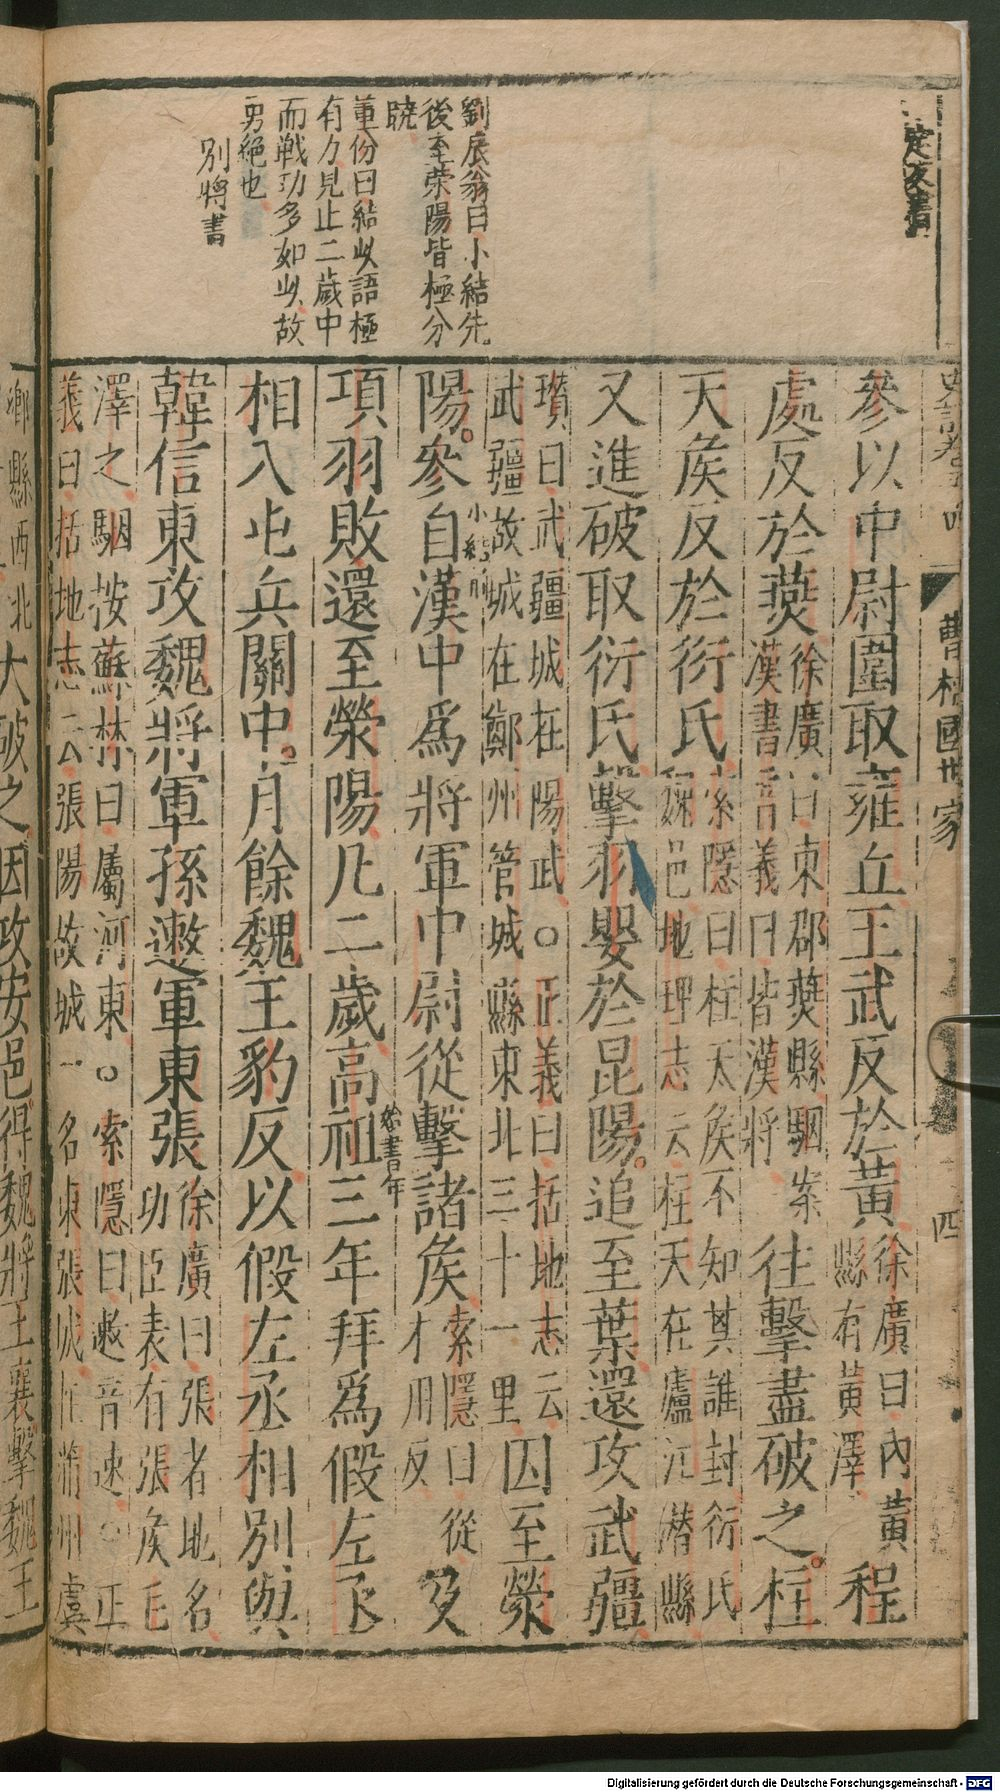 劉辰翁曰小結先
後至榮陽皆極分
曉
董份曰結此語極
有力見止二歲中
而戰功多如此故
別將書
史記卷五十四
曹相國世家
四
參以中尉圍取雍丘王武反於黃徐廣曰內黃縣有黃澤程
處反於燕徐廣曰東郡燕縣駰案漢書音義曰皆漢將往擊盡破之。柱
天侯反於衍氏索隱曰柱天侯不知其誰封衍氏魏邑地理志云柱天在廬江潛縣
又進破取衍氏擊羽嬰於昆陽。追至葉還攻武彊
瓚曰武彊城在陽武○正義曰括地志云武彊故城在鄭州管城縣東北三十一里因至滎
陽。參自漢中為將軍中尉從擊諸侯索隱曰從才用反及
小結前
項羽敗還至滎陽凡二歲高祖三年拜為假左丞
總書年
相入屯兵關中。月餘魏王豹反以假左丞相別與
韓信東攻魏將軍孫遬軍東張徐廣曰張者地名功臣表有張侯毛
澤之駰按蘇林曰屬河東○索隱曰遬音速○正
義曰括地志云張陽故城一名東張城在蒲州虞
鄉縣西北大破之因攻安邑得魏將王襄擊魏王
Digitalisierung gefördert durch die Deutsche Forschungsgemeinschaft - DFG